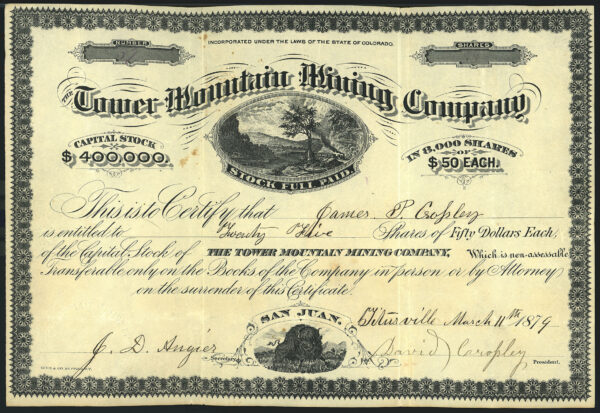 NUMBER
INCORPORATED UNDER THE LAWS OF THE STATE OF COLORADO.
SHARES
THE Tower Mountain Mining Company
CAPITAL STOCK
$400,000.
STOCK FULL PAID.
IN 8,000 SHARES
OF
$50 EACH.
This is to Certify that James P. Cropley
is entitled to Twenty Five Shares of Fifty Dollars Each,
of the Capital Stock of THE TOWER MOUNTAIN MINING COMPANY, Which is non-assessable
Transferable only on the Books of the Company in person or by Attorney
on the surrender of this Certificate.
SAN JUAN.
Titusville March 11th 1879
J. D. Angier Secretary
David Cropley President.